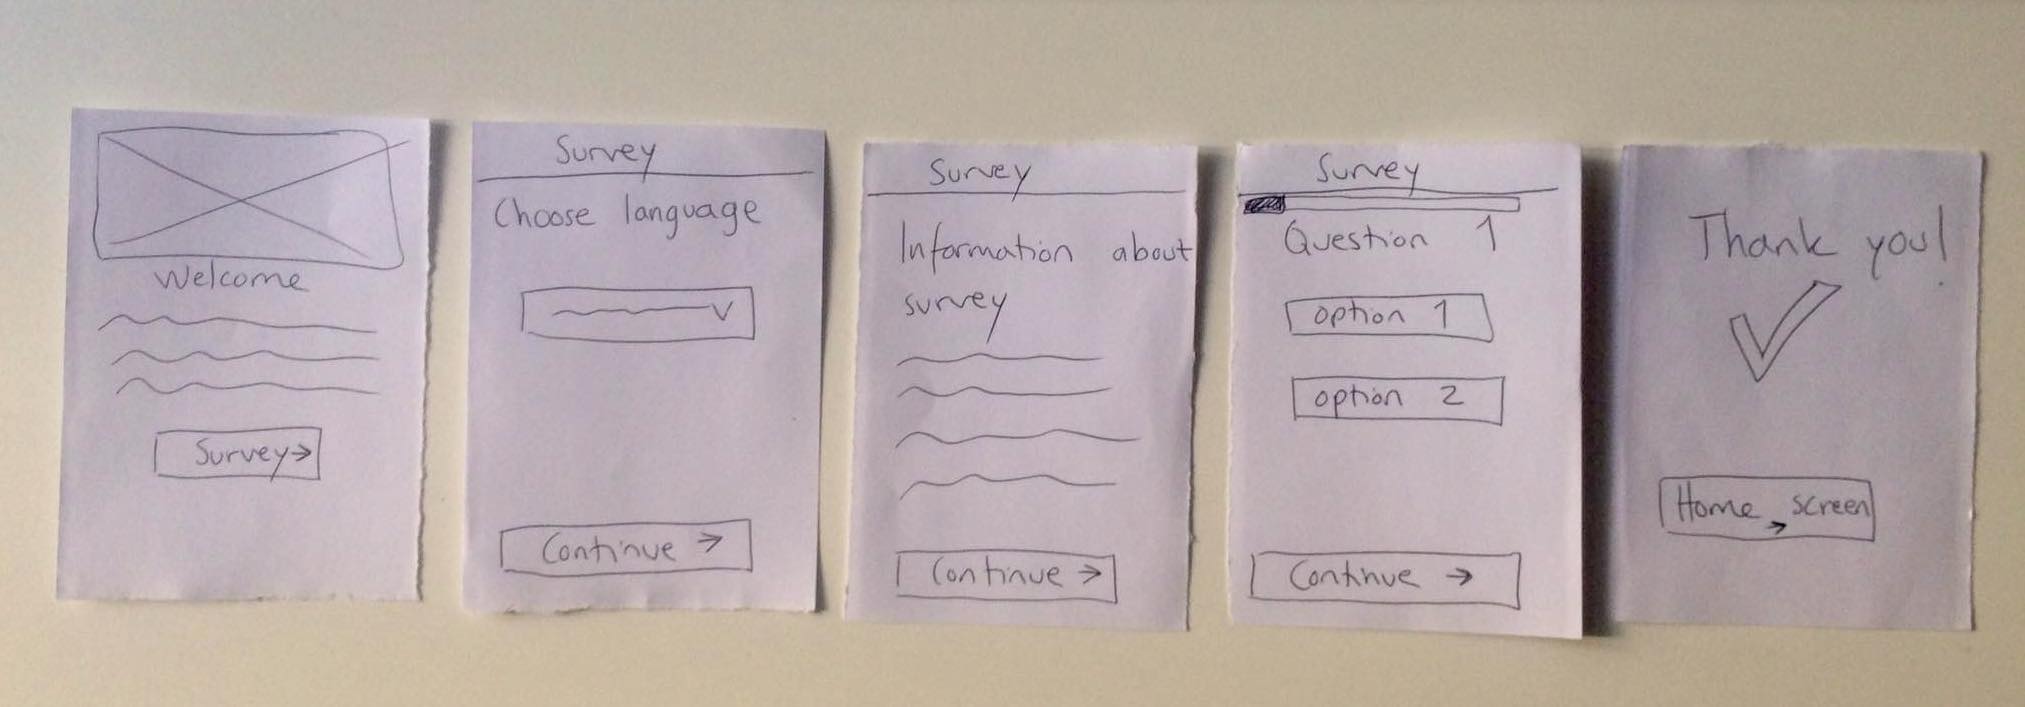 Welcome
Survey→
Survey
Choose language
Continue →
Survey
Information about
survey
Continue →
Survey
Question 1
option 1
option 2
Continue →
Thank you!
Home → screen